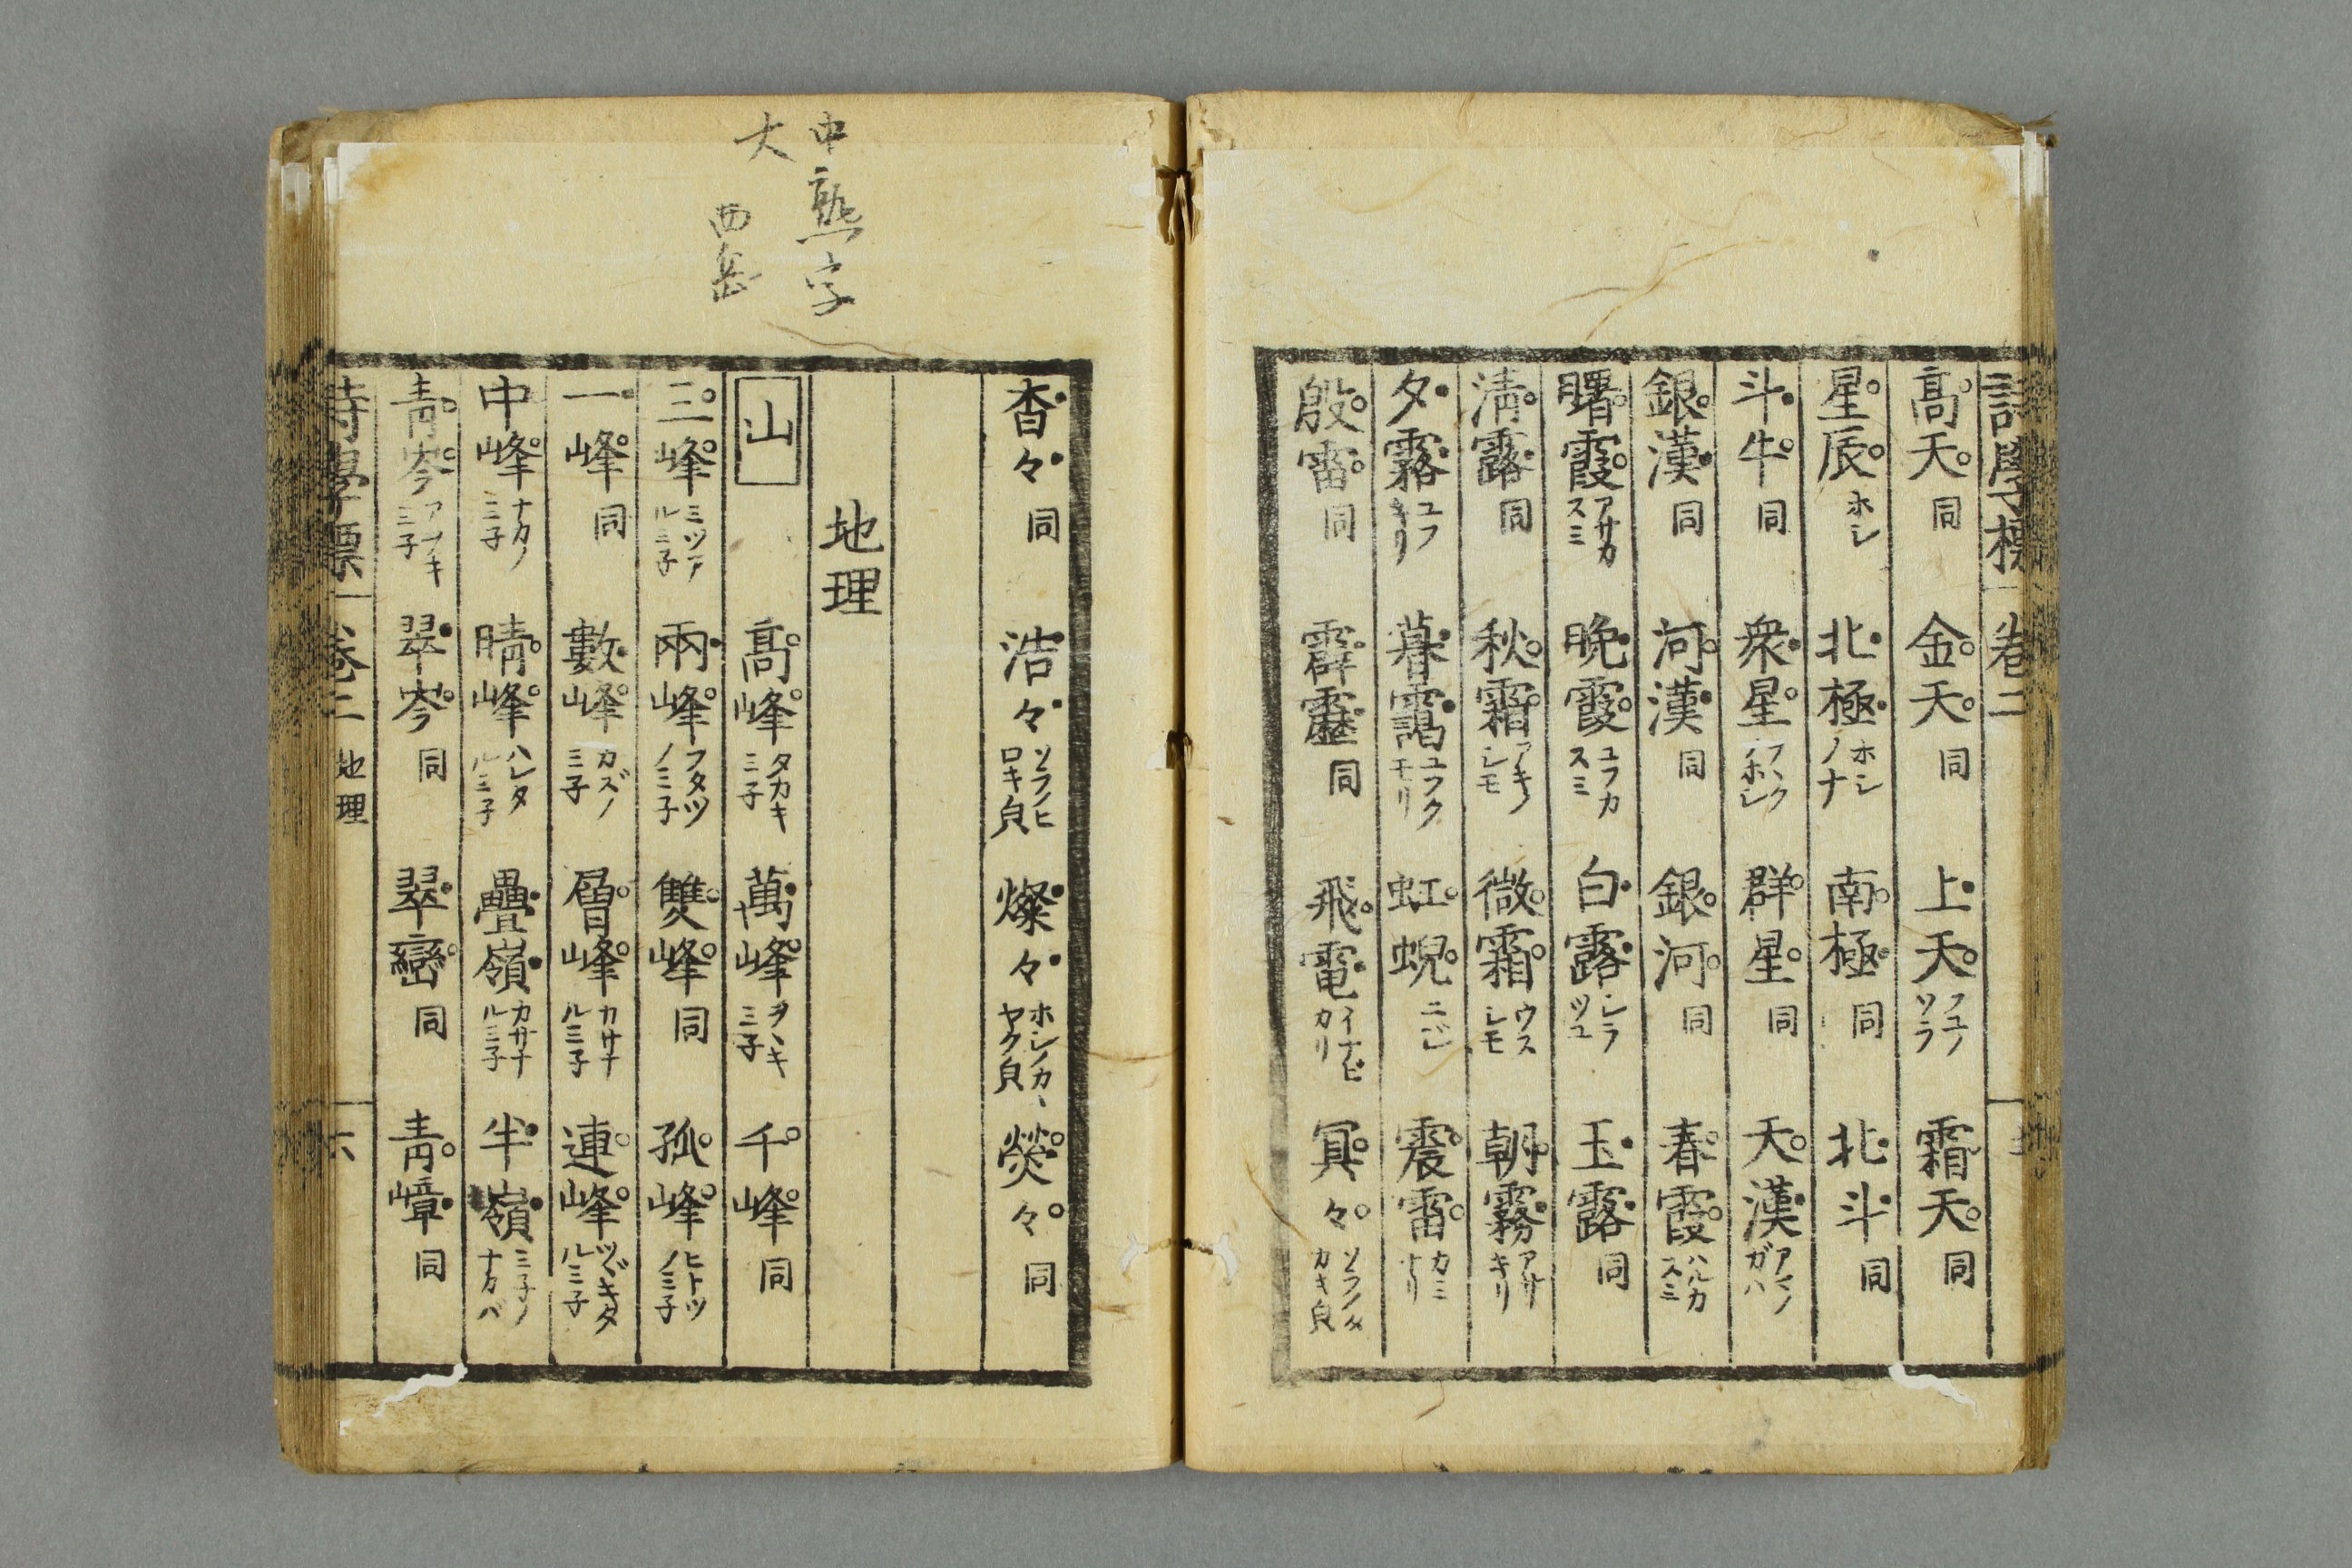 詩學標 卷二
高天 同 金天 同 上天 フユノソラ 霜天 同
星辰 ホシ 北極 ホシノナ 南極 同 北斗 同
斗牛 同 衆星 ヲヽクノホシ 群星 同 天漢 アマノガハ
銀漢 同 河漢 同 銀河 同 春霞 ハルカスミ
曙霞 アサカスミ 晩霞 ユフカスミ 白露 シラツユ 玉露 同
淸露 同 秋霜 アキノシモ 微霜 ウスシモ 朝霧 アサキリ
夕霧 ユフキリ 暮靄 ユフクモリ 虹蜺 ニジ 震雷 カミナリ
殷雷 同 霹靂 同 飛電 イナビカリ 冥々 ソラノタカキ皃
杳々 同 浩々 ソラノヒロキ皃 燦々 ホシノカヽヤク皃 熒々 同
地理
山 高峰 タカキミ子 萬峰 ヲヽキミ子 千峰 同
三峰 ミツアルミ子 兩峰 フタツノミ子 雙峰 同 孤峰 ヒトツノミ子
一峰 同 數峰 カズノミ子 層峰 カサナルミ子 連峰 ツヾキタルミ子
中峰 ナカノミ子 晴峰 ハレタルミ子 疊嶺 カサナルミ子 半嶺 ミ子ノナカバ
靑岑 アヲキミ子 翠岑 同 翠巒 同 靑嶂 同
詩學標 卷二 地理 六
中熟字
大 西岳